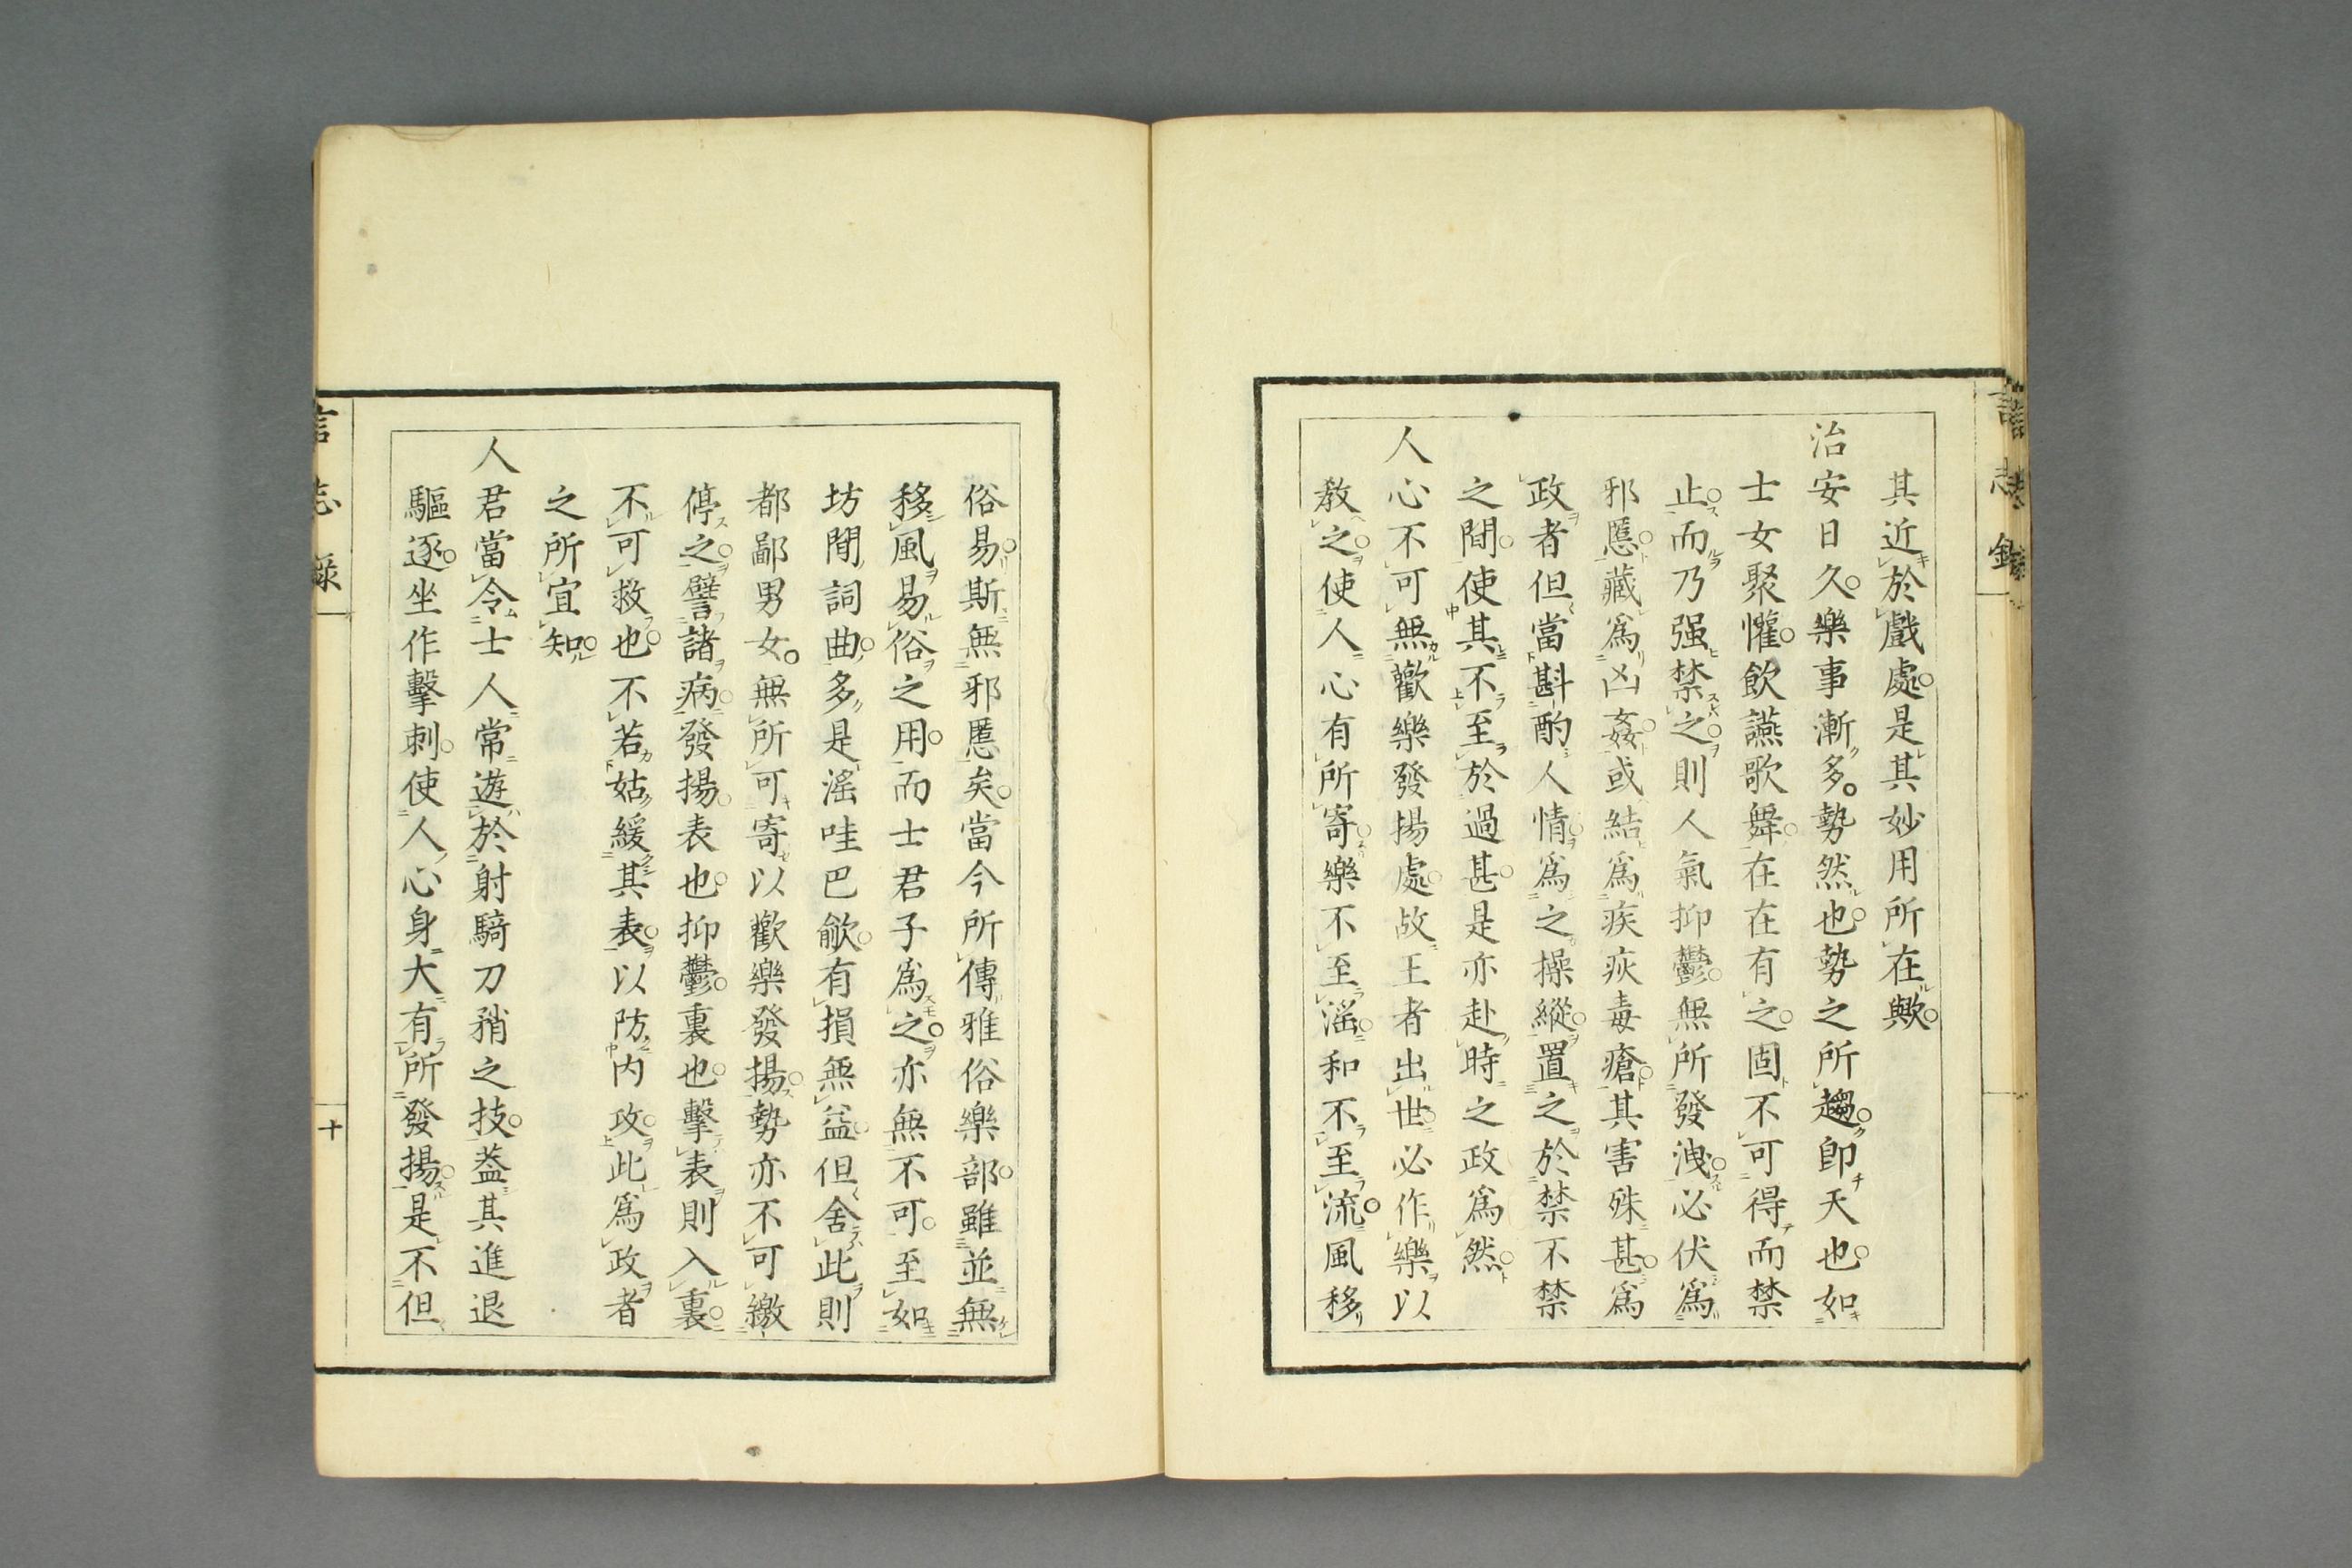 言志錄
其近於戲處是其妙用所在歟
治安日久樂事漸多勢然也勢之所趨卽天也如
士女聚懽飮讌歌舞在在有之固不可得而禁
止而乃强禁之則人氣抑鬱無所發洩必伏爲
邪慝藏爲凶姦或結爲疾疢毒瘡其害殊甚爲
政者但當斟酌人情爲之操縱置之於禁不禁
之間使其不至於過甚是亦赴時之政爲然
人心不可無歡樂發揚處故王者出世必作樂以
敎之使人心有所寄樂不至淫和不至流風移
俗易斯無邪慝矣當今所傳雅俗樂部雖並無
移風易俗之用而士君子爲之亦無不可至如
坊間詞曲多是淫哇巴歈有損無益但舍此則
都鄙男女無所可寄以歡樂發揚勢亦不可繳
停之譬諸病發揚表也抑鬱裏也擊表則入裏
不可救也不若姑緩其表以防內攻此爲政者
之所宜知
人君當令士人常遊於射騎刀矟之技蓋其進退
驅逐坐作擊刺使人心身大有所發揚是不但
言志錄
十